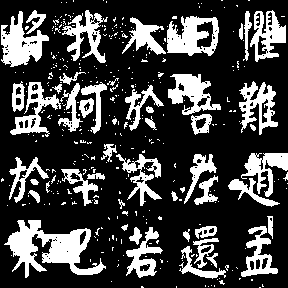 懼難趙孟
曰吾左還
入於宋若
我何辛巳
將盟於宋